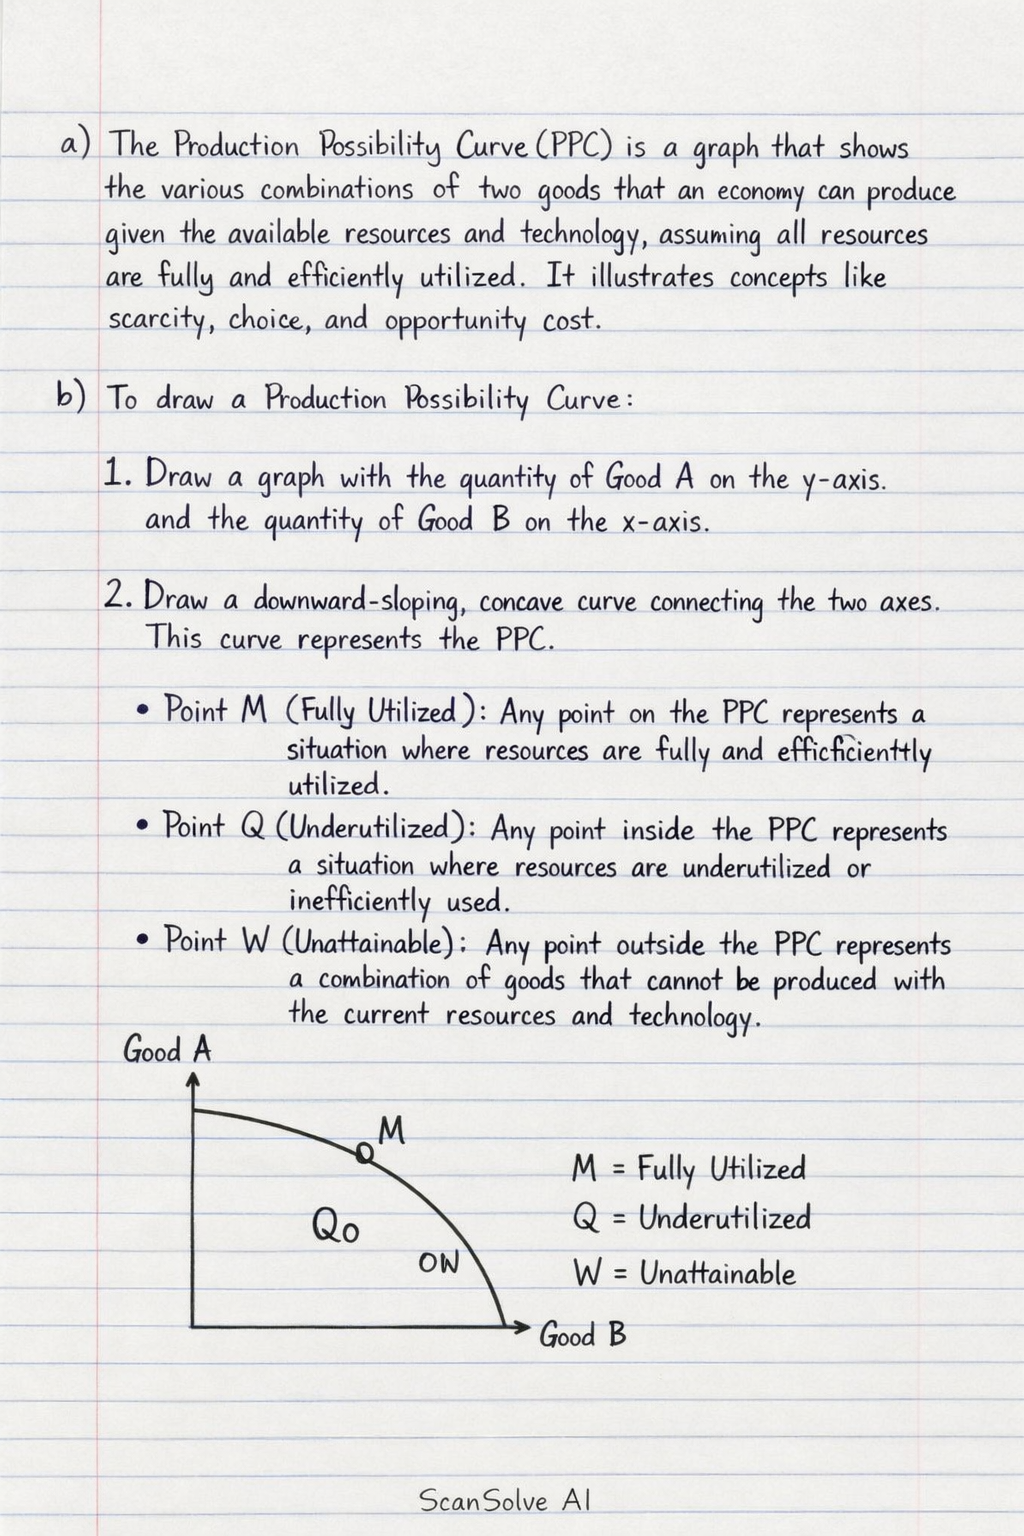 a) The Production Possibility Curve (PPC) is a graph that shows
the various combinations of two goods that an economy can produce
given the available resources and technology, assuming all resources
are fully and efficiently utilized. It illustrates concepts like
scarcity, choice, and opportunity cost.
b) To draw a Production Possibility Curve:
1. Draw a graph with the quantity of Good A on the y-axis.
and the quantity of Good B on the x-axis.
2. Draw a downward-sloping, concave curve connecting the two axes.
This curve represents the PPC.
• Point M (Fully Utilized): Any point on the PPC represents a
situation where resources are fully and efficficienttly
utilized.
• Point Q (Underutilized): Any point inside the PPC represents
a situation where resources are underutilized or
inefficiently used.
• Point W (Unattainable): Any point outside the PPC represents
a combination of goods that cannot be produced with
the current resources and technology.
Good A
M
M = Fully Utilized
Q = Underutilized
Qo
OW
W = Unattainable
Good B
ScanSolve AI